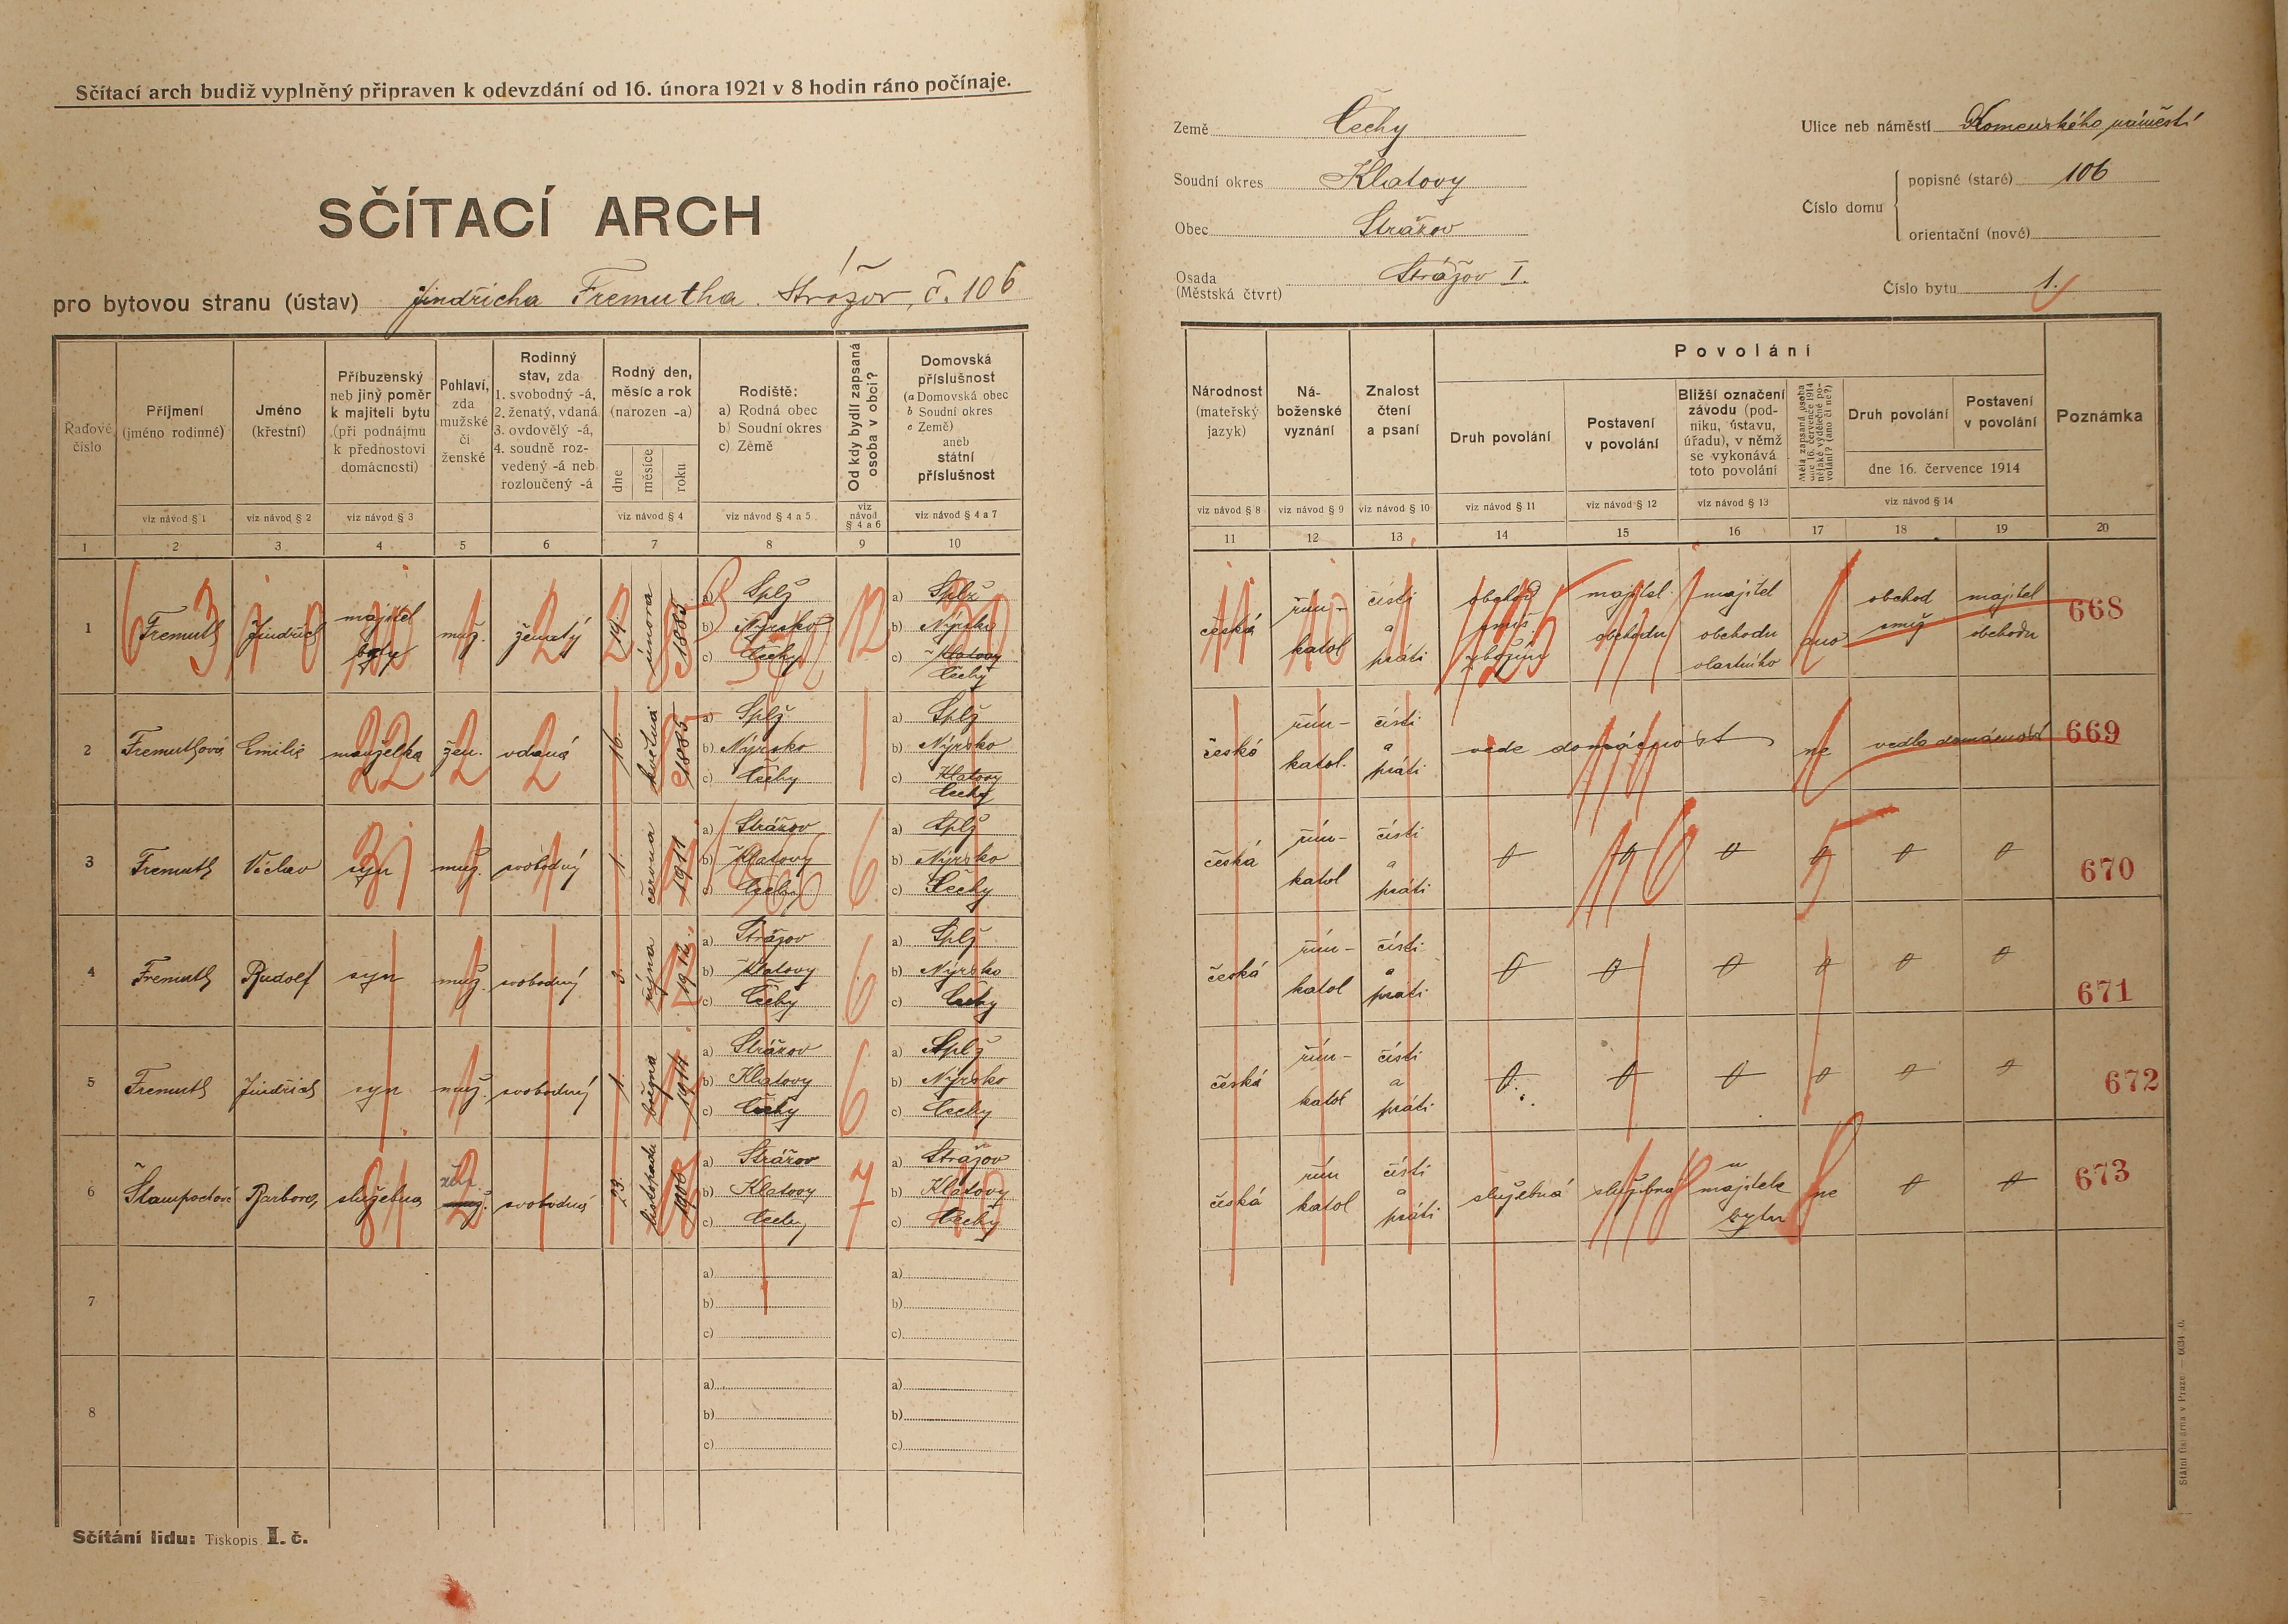 Sčítací arch budiž vyplněný připraven k odevzdání od 16. února 1921 v 8 hodin ráno počínaje.
SČÍTACÍ ARCH
pro bytovou stranu (ústav) Jindřicha Fremutha. Strážov, č. 106
Země Čechy
Soudní okres Klatovy
Obec Strážov
Osada (Městská čtvrt) Strážov I.
Ulice neb náměstí Komenského náměstí
Číslo domu
popisné (staré) 106
orientační (nové)
Číslo bytu 1.
Řadové číslo
Příjmení (jméno rodinné)
Jméno (křestní)
Příbuzenský neb jiný poměr k majiteli bytu (při podnájmu k přednostovi domácnosti)
Pohlaví, zda mužské či ženské
Rodinný stav, zda 1. svobodný -á, 2. ženatý, vdaná 3. ovdovělý -á, 4. soudně rozvedený -á neb rozloučený -á
Rodný den, měsíc a rok (narozen -a)
dne měsíce roku
Rodiště: a) Rodná obec b) Soudní okres c) Země
Od kdy bydlí zapsaná osoba v obci?
Domovská příslušnost (a Domovská obec b Soudní okres c Země) aneb státní příslušnost
viz návod § 1 viz návod § 2 viz návod § 3 viz návod § 4 viz návod § 4 a 5 viz návod § 4 a 6 viz návod § 4 a 7
1 2 3 4 5 6 7 8 9 10
Národnost (mateřský jazyk)
Náboženské vyznání
Znalost čtení a psaní
Povolání
Druh povolání
Postavení v povolání
Bližší označení závodu (podniku, ústavu, úřadu), v němž se vykonává toto povolání
Měla zapsaná osoba dne 16. července 1914 nějaké výdělečné povolání? (ano či ne?)
Druh povolání
Postavení v povolání
dne 16. července 1914
Poznámka
viz návod § 8 viz návod § 9 viz návod § 10 viz návod § 11 viz návod § 12 viz návod § 13 viz návod § 14
11 12 13 14 15 16 17 18 19 20
1 Fremuth Jindřich majitel bytu muž. ženatý 19. února 1885 a) Splž b) Nýrsko c) Čechy a) Splž b) Nýrsko c) Klatovy Čechy
česká řím-katol čísti a psáti obchod smíš zbožím majitel obchodu majitel obchodu vlastního ano obchod smíš majitel obchodu 668
2 Fremuthová Emilie manželka žen. vdaná 16. května 1885 a) Splž b) Nýrsko c) Čechy a) Splž b) Nýrsko c) Klatovy Čechy
česká řím-katol. čísti a psáti vede domácnost ne vedla domácnost 669
3 Fremuth Václav syn muž. svobodný 1. června 1911 a) Strážov b) Klatovy c) Čechy a) Splž b) Nýrsko c) Čechy
česká řím-katol čísti a psáti 670
4 Fremuth Rudolf syn muž. svobodný 3. října 1912 a) Strážov b) Klatovy c) Čechy a) Splž b) Nýrsko c) Čechy
česká řím-katol čísti a psáti 671
5 Fremuth Jindřich syn muž. svobodný 1. 1914 a) Strážov b) Klatovy c) Čechy a) Splž b) Nýrsko c) Čechy
česká řím-katol čísti a psáti 672
6 Barbora služebná svobodná 23. listopadu 1906 a) Strážov b) Klatovy c) Čechy a) Strážov b) Klatovy c) Čechy
česká řím katol čísti a psáti služebná služebná u majitele bytu ne 673
7 a) b) c) a) b) c)
8 a) b) c) a) b) c)
Sčítání lidu: Tiskopis I. č.
Státní tiskárna v Praze. — 6034 .0.